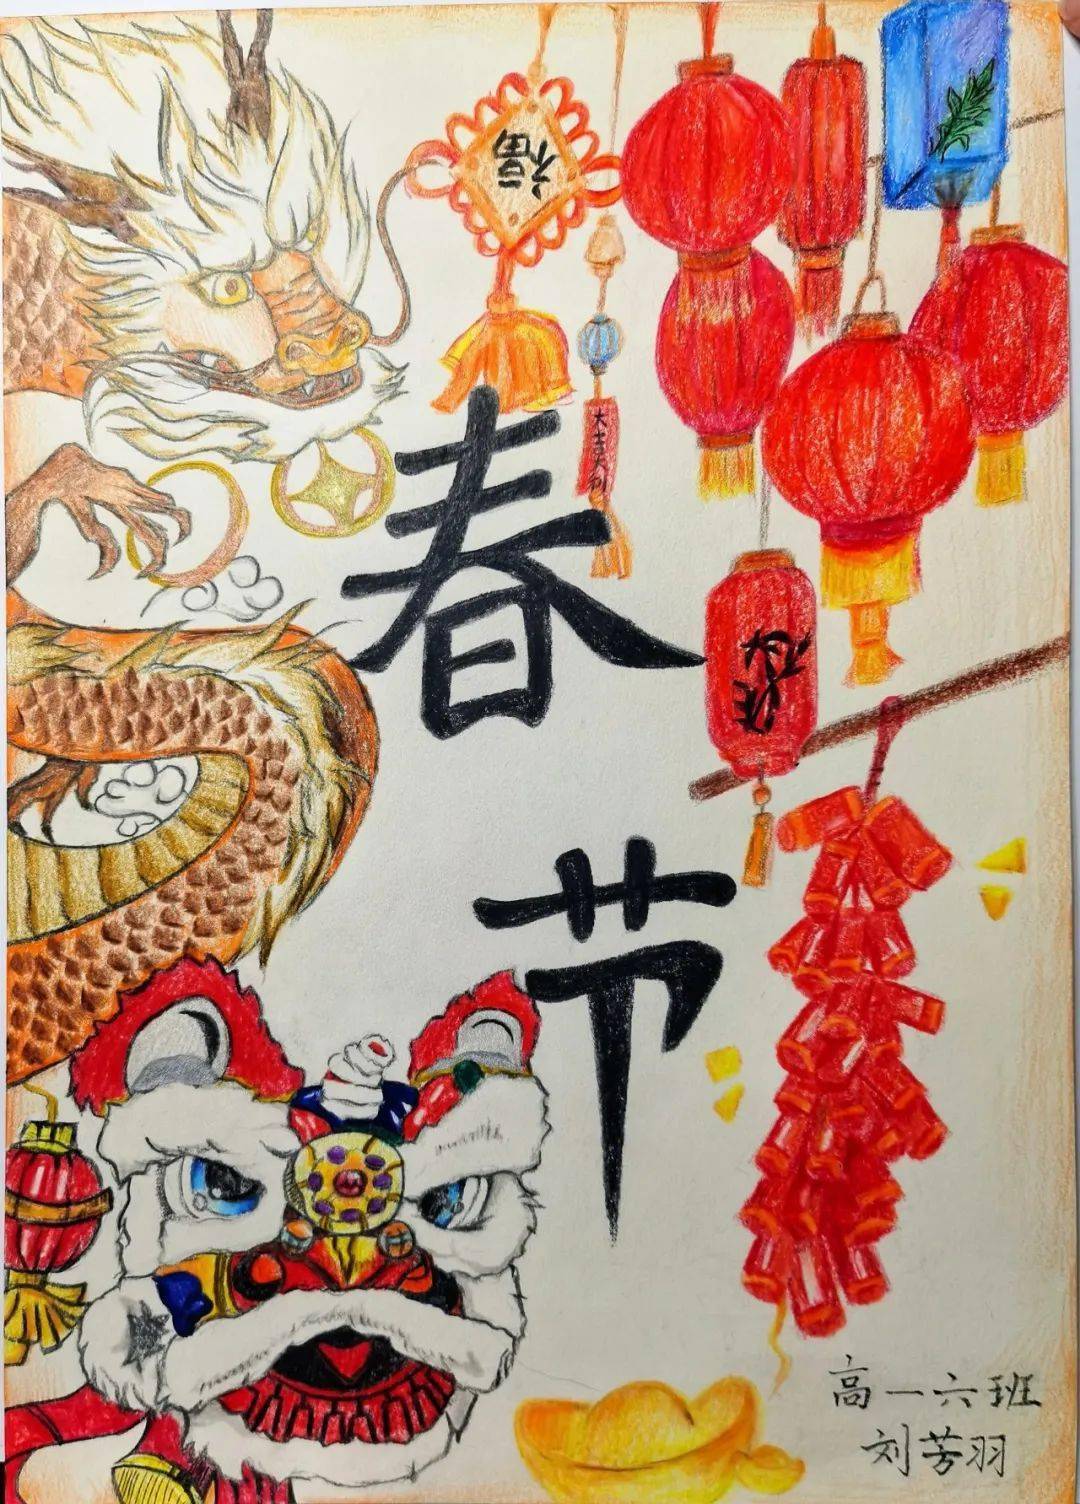 福
大吉大利
春
节
高一六班
刘芳羽